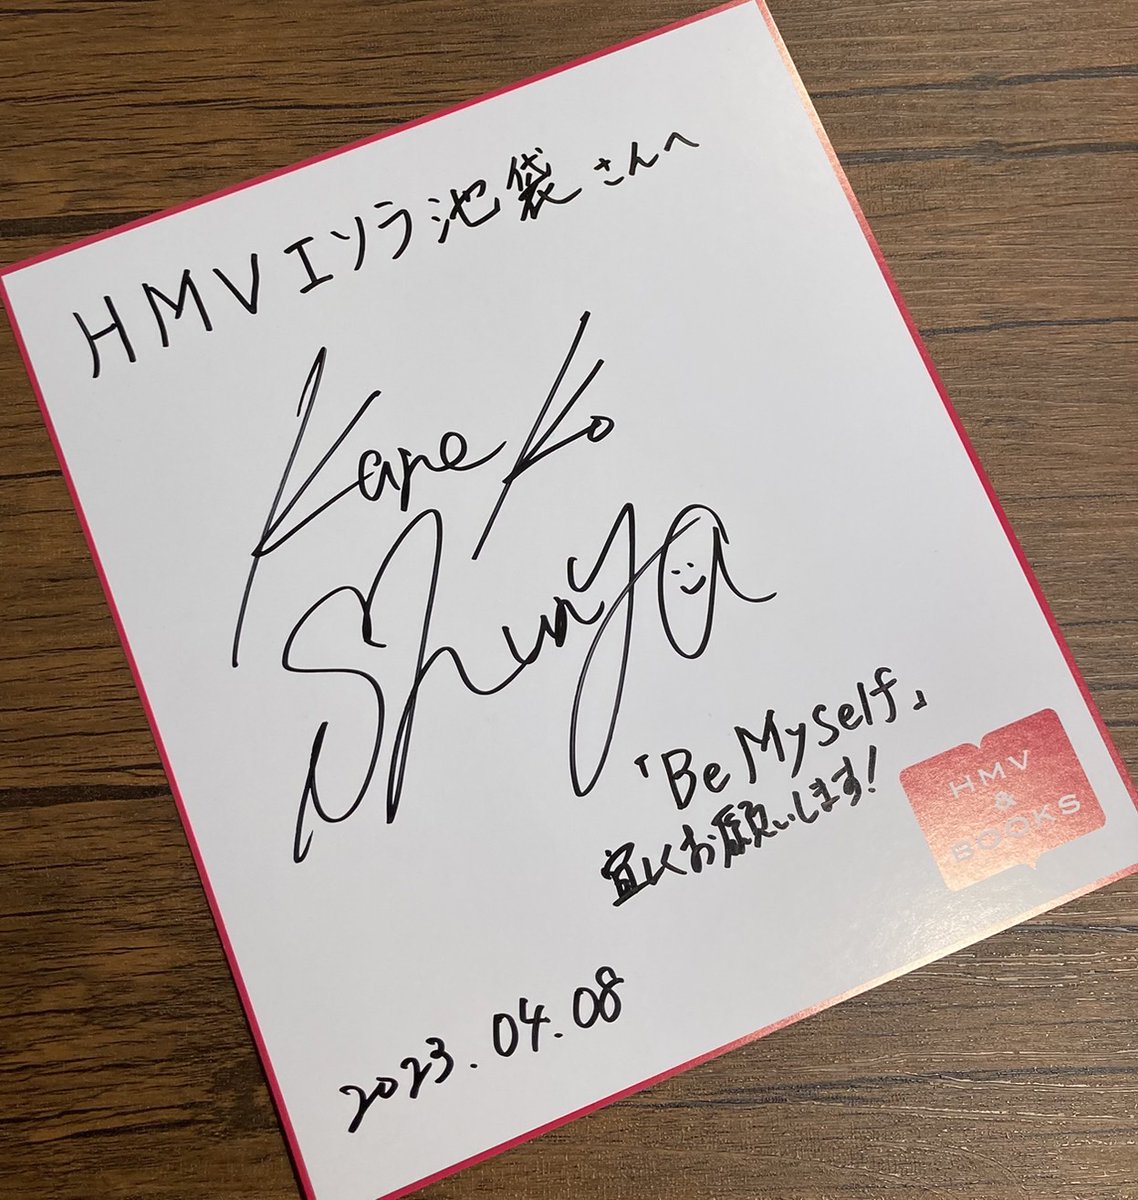 HMVエソラ池袋さんへ
KaneKo
Shunya
「Be Myself」
宜しくお願いします!
HMV
&
BOOKS
2023.04.08